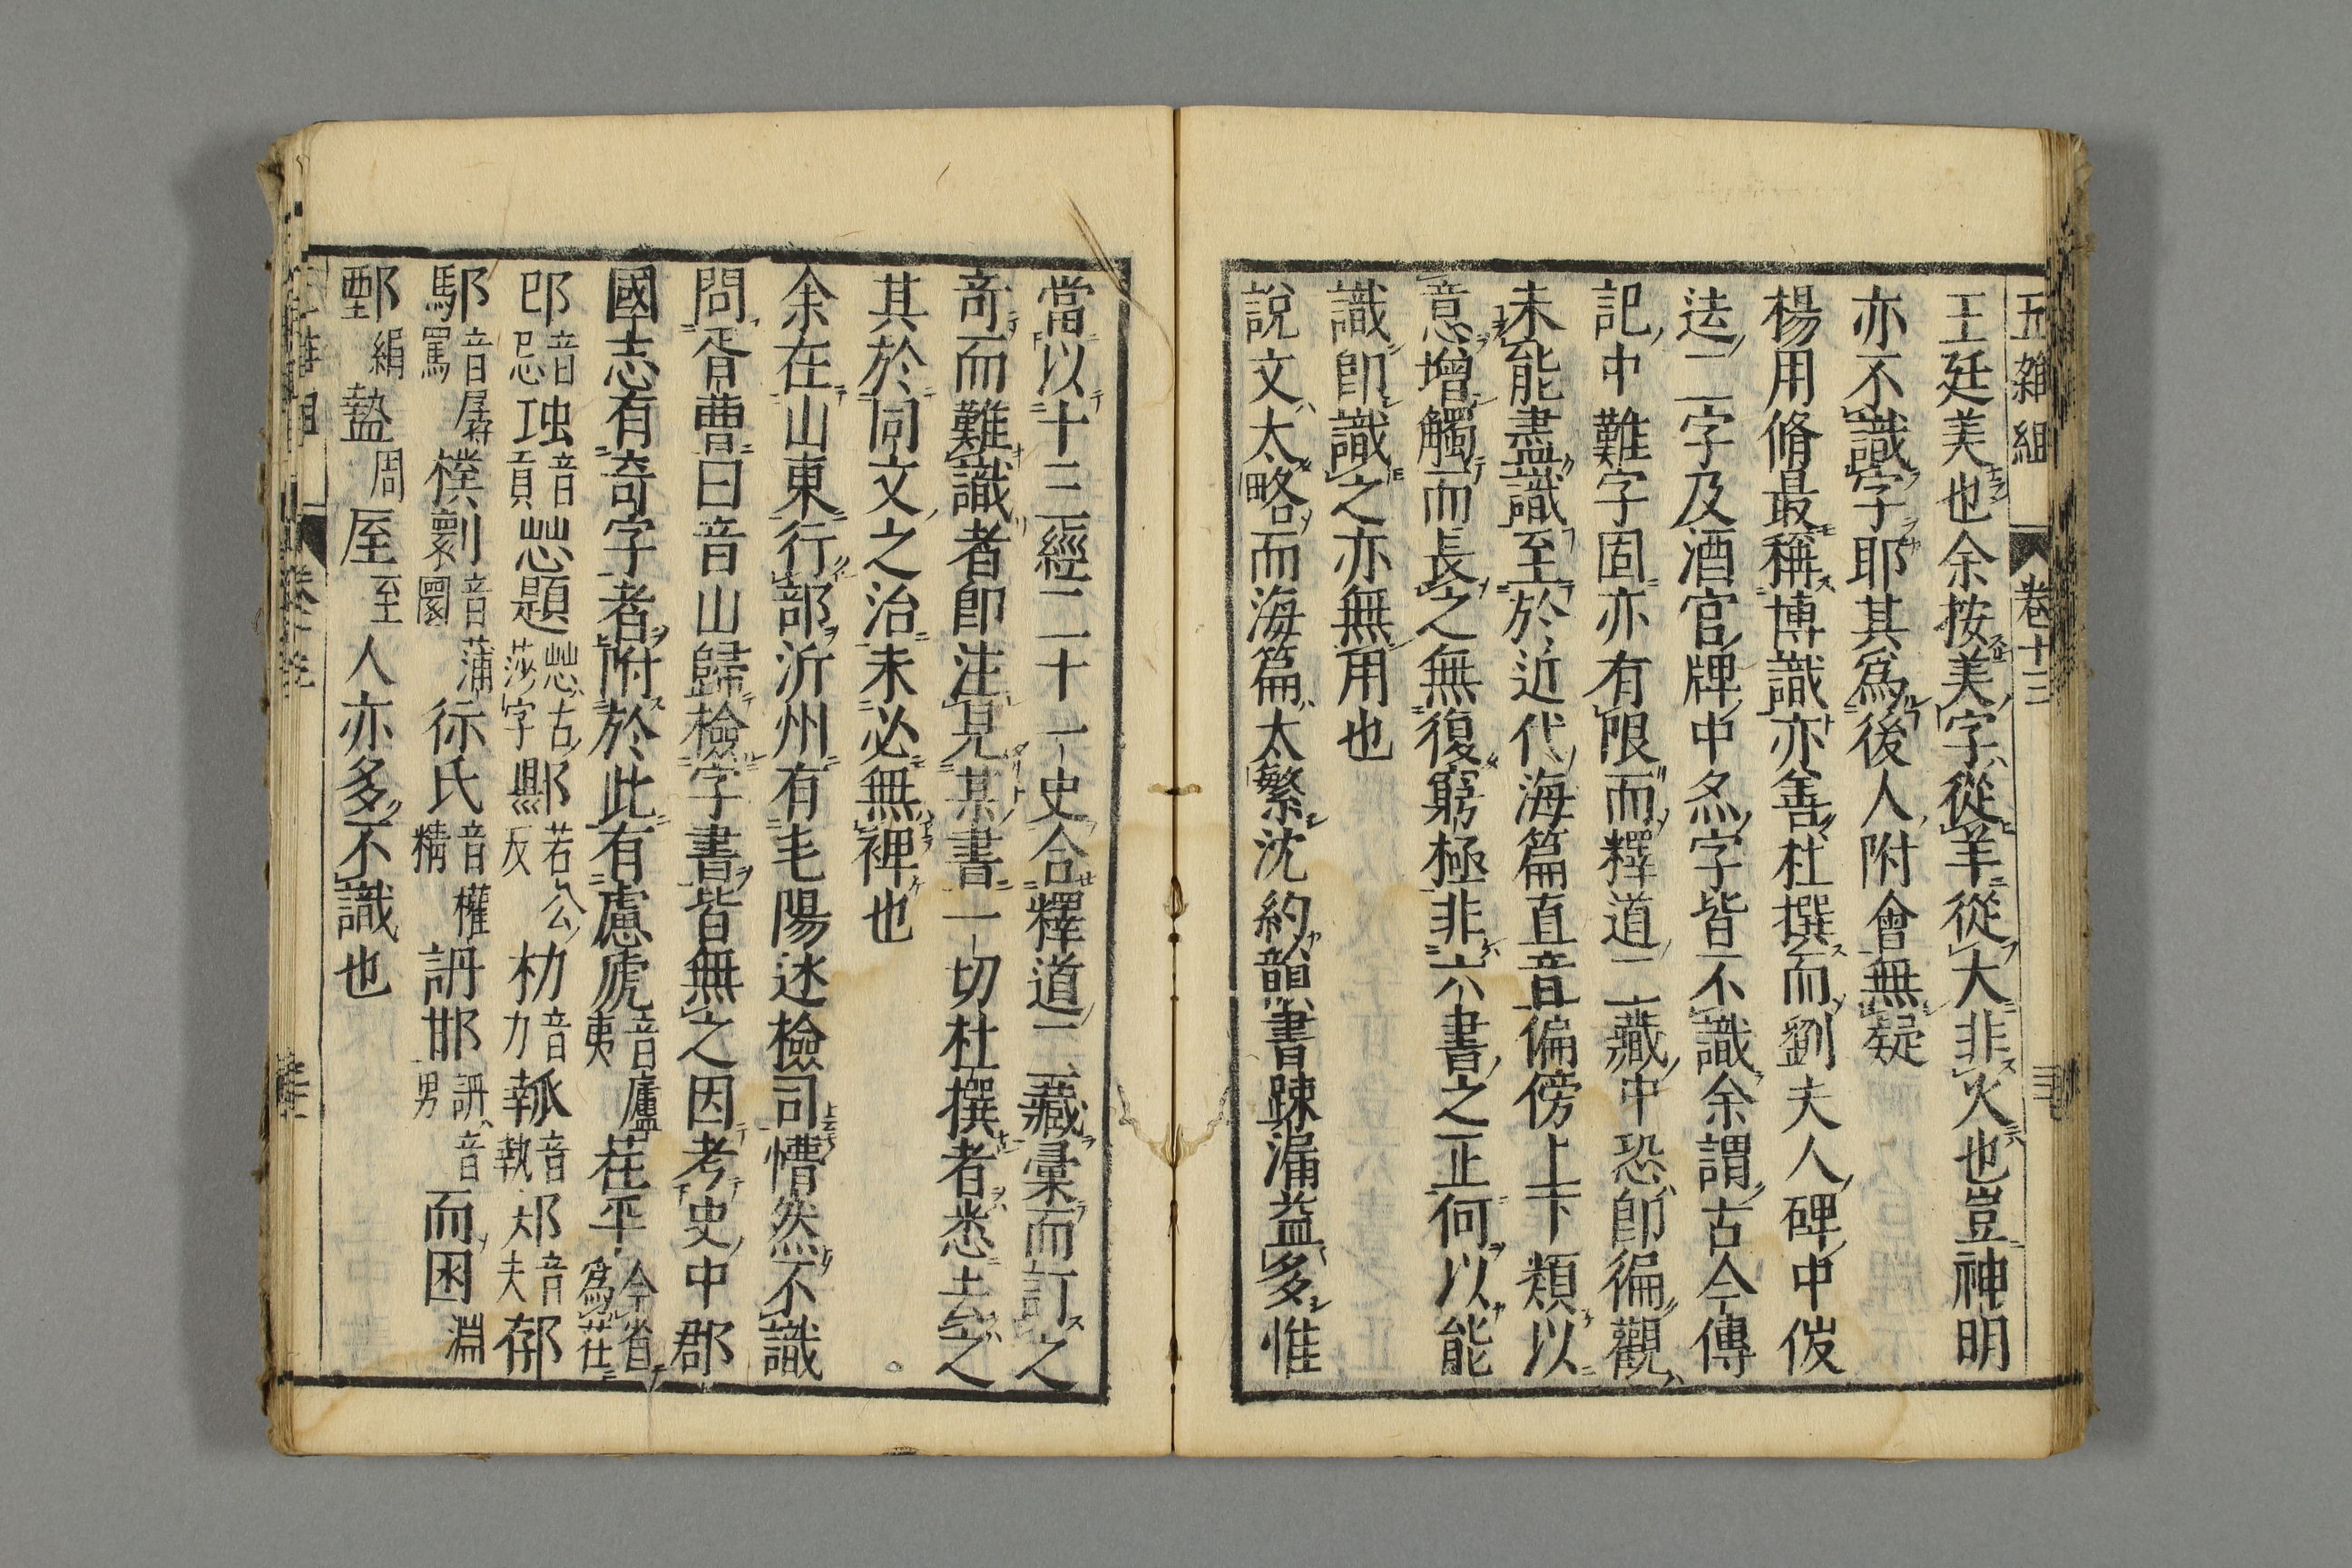 五雜組 卷十三
王廷美也余按美字從羊從大非火也豈神明
亦不識字耶其爲後人附會無疑
楊用脩最稱博識亦善杜撰而劉夫人碑中㑪
法二字及酒官牌中字皆不識余謂古今傳
記中難字固亦有限而釋道二藏中恐卽徧觀
未能盡識至於近代海篇直音偏傍上下類以
意增觸而長之無復窮極非六書之正何以能
識卽識之亦無用也
說文太略而海篇太繁沈約韻書踈漏益多惟
當以十三經二十一史合釋道二藏彙而訂之
奇而難識者卽注見某書一切杜撰者悉去之
其於同文之治未必無裨也
余在山東行部沂州有毛陽迯檢司懵然不識
問胥曹曰音山歸檢字書皆無之因考史中郡
國志有奇字者附於此有慮虒音廬夷茬平今省爲茌
郘音忌蛩音貢題古莎字鄢若公反朸音力瓡音執邞音夫郁
駅音孱罵樸劋音蒲圜徐氏音權精䛁邯䛁音男而囦淵
鄄絹盩周厔至人亦多不識也